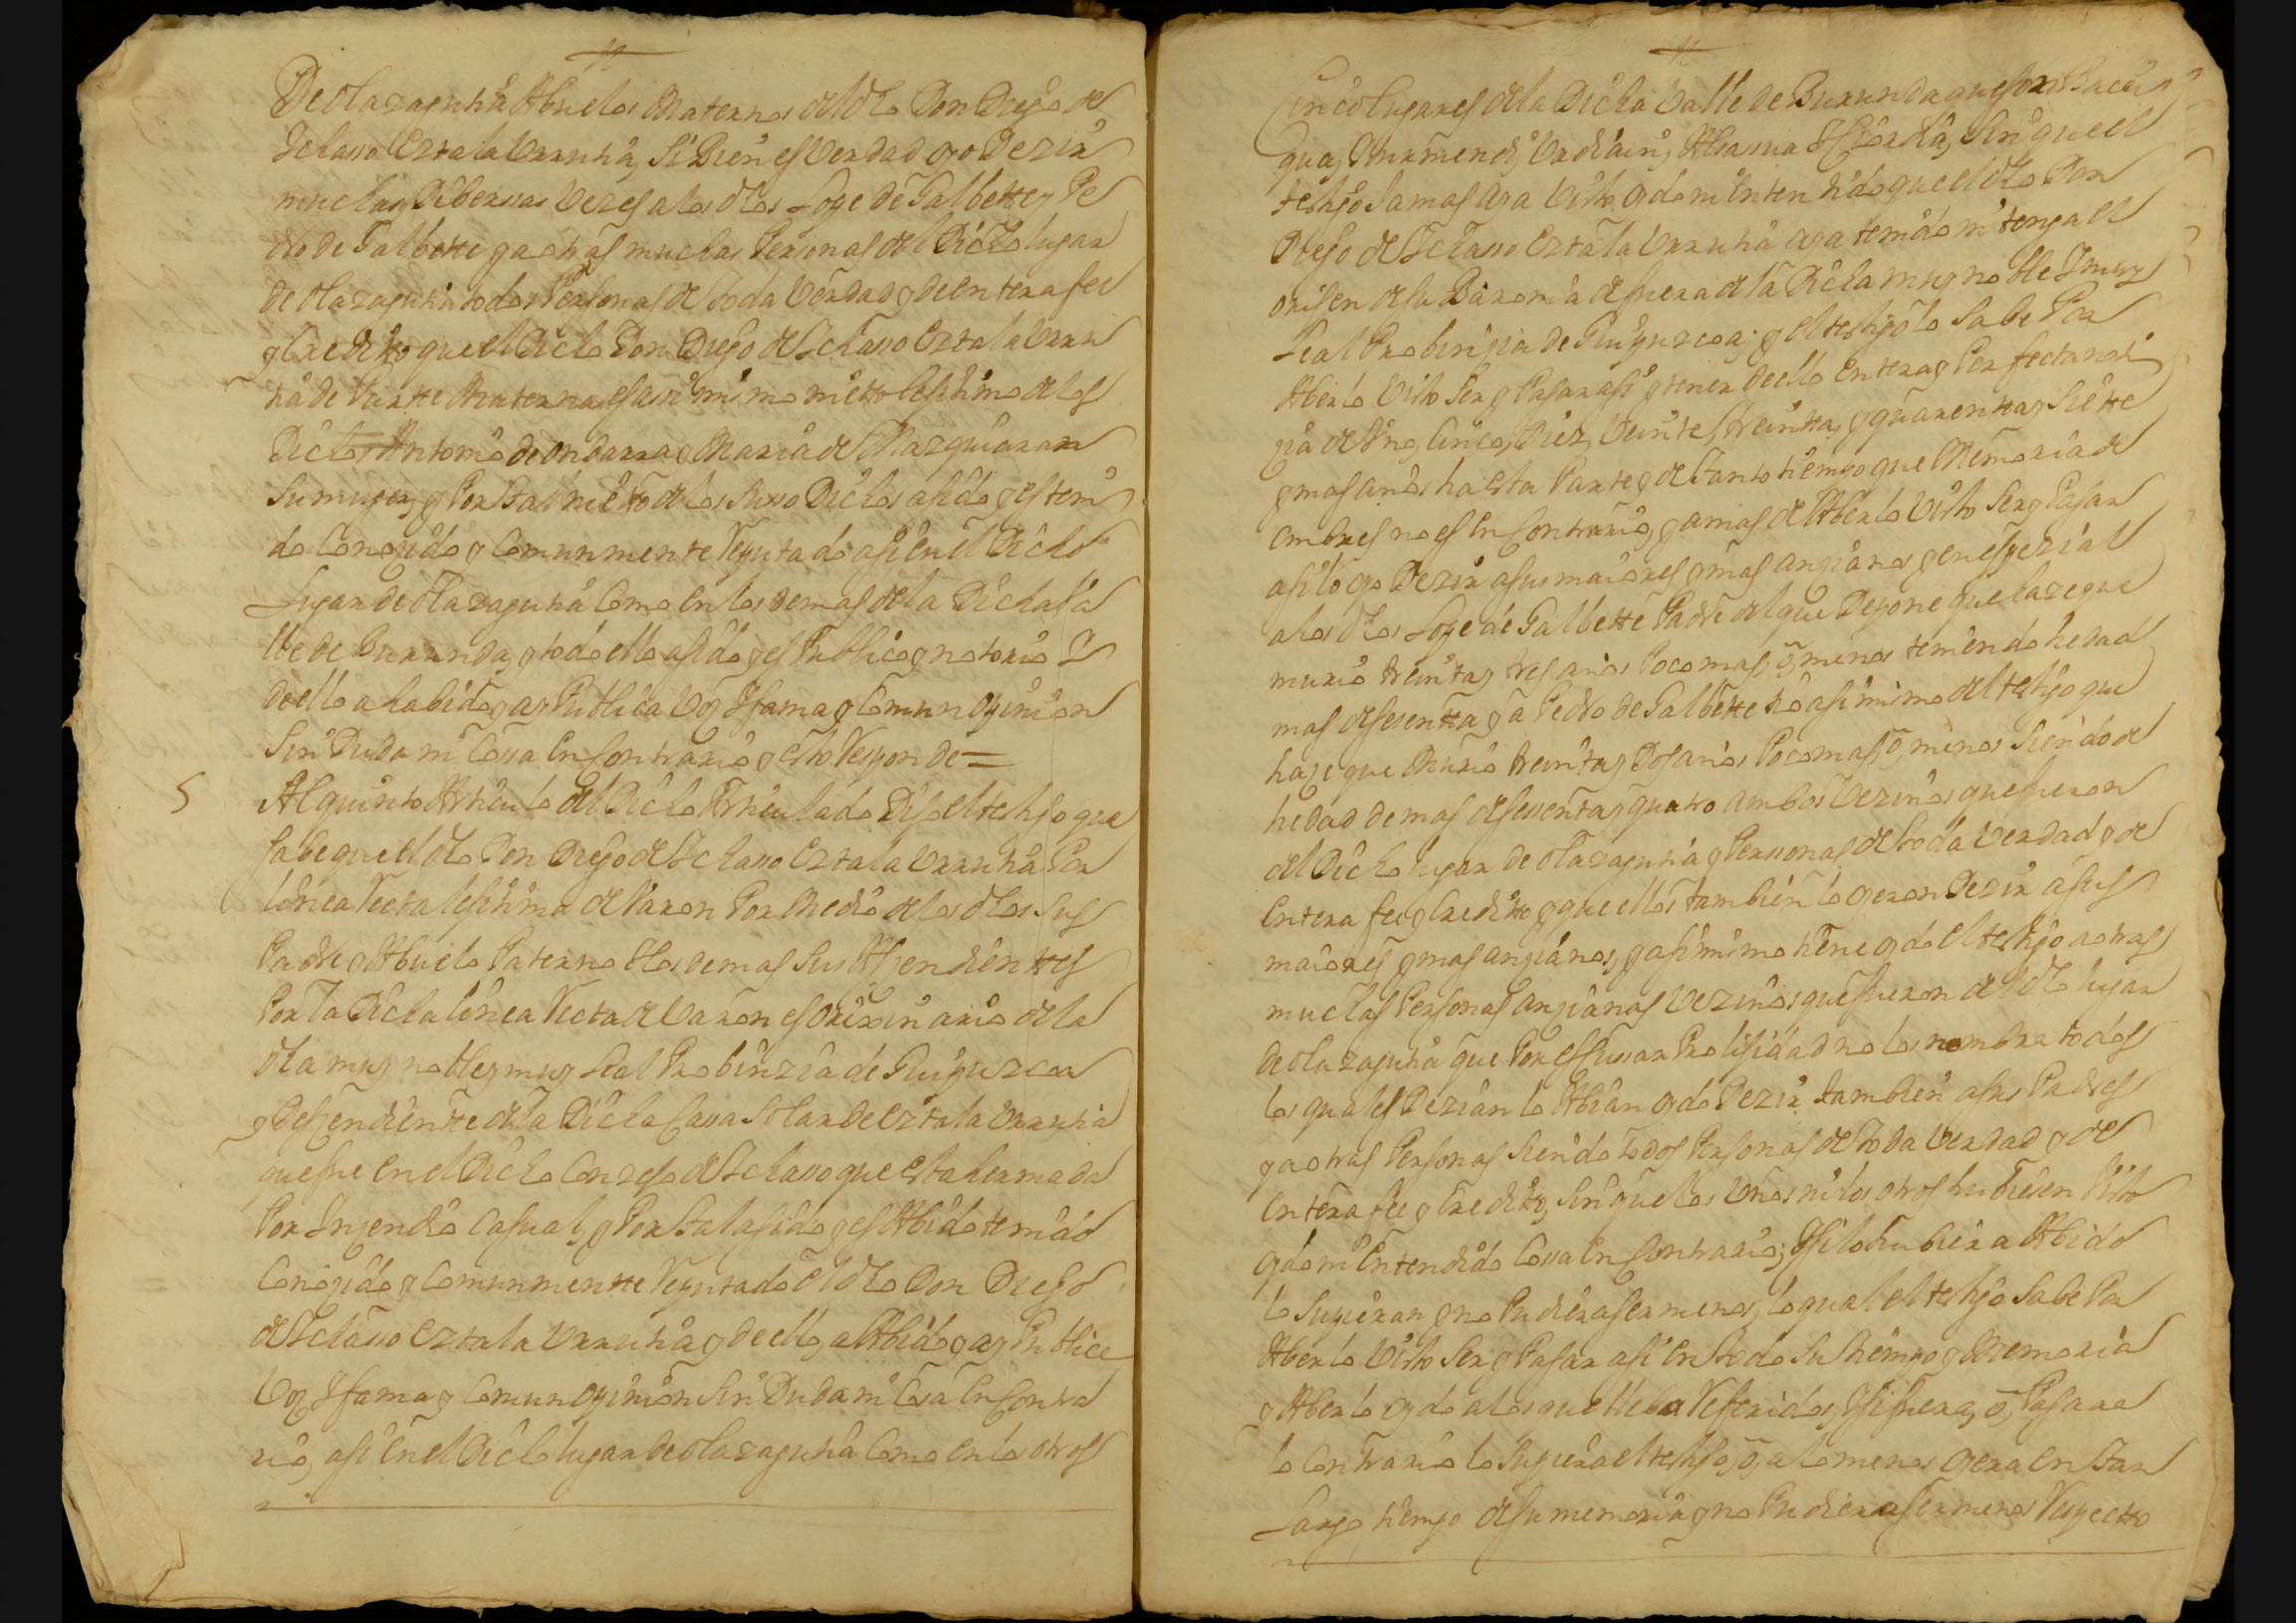 De olazaguttia Abuelos Maternos del dho Don Diego de
Ychasso Eztala Urrutia, Si Bien es Verdad oyo Dezir
muchas y Dibersas Vezes a los dhos Jope de Galbette y Pe
dro de Galbette y a otras muchas Personas del Dicho lugar
de olazagutia todos Personas de toda Verdad y de entera fee
y Credito que el Dicho Don Diego de Ychasso Eztala Urru
tia de Partte Materna es asi mismo nietto lejitimo de los
Dichos Antonio de ondarra y Maria de Mazquiaran
Su mujer, y Por Tal nieto de los Suso Dichos a sido y es teni
do Conozido y Comunmente Reputado asi en el Dicho
Lugar de olazagutia Como en los demas de la Dicha Va
lle de Burunda, y todo ello a sido y es Publico y notorio Y
de ello a habido y ay Publica Voz Y fama y Comun opinion
Sin Duda ni Cossa en Contrario y esto Responde =
5 Al quinto Articulo del Dicho Articulado Dijo el testigo que
sabe que el dho Don Diego de Ychasso Eztala Urrutia Por
linea Recta lejitima de Varon Por Medio de los dhos Sus
Padre y Abuelo Paterno Y los demas Sus Aszendienttes
Por la Dicha linea Recta de Varon es orixinario de la
dha muy noble y muy leal Probinzia de Guipuzcoa
y deszendientte de la Dicha Cassa Solar de Eztala Urrutia
que fue en el Dicho Conzejo de Ychasso que esta hermada
Por Inzendio Casual, y Por tal a sido y es Abido tenido
Conozido y Comunmentte Reputado el dho Don Diego
de Ychasso Eztala Urrutia y de ello, a Abido y ay Publica
Voz Y fama y Comun opinion Sin Duda ni Cosa en Contra
rio, asi en el Dicho lugar de olazagutia Como en los otros
Cinco lugares de la Dicha Valle de Burunda que son Bacai
qua, Yturmendi, Urdiain, Alsasua Y Ziordia, Sin que el
testigo Jamas aya Visto, oydo ni entendido que el dho Don
Diego de Ychasso Eztala Urrutia aya tenido ni tenga el
orijen de su Baronia de fuera de la Dicha muy noble Y muy
leal Probinzia de Guipuzcoa; y el testigo lo Sabe Por
Aberlo Visto Ser y Pasar asi y tener de ello entera y Perfecta noti
zia de Uno, Cinco, Diez, Veinte, treintta, y quarentta y Siette
y mas años ha esta Parte, y de Tanto tiempo que Memoria de
ombres no es en Contrario, y a mas de Aberlo Visto Ser y Pasar
asi lo oyo Dezir a sus maiores y mas anzianos y en espezial
a los dhos Jope de Galbette Padre del que Depone que haze que
murio treinta y tres años Poco mas, o menos teniendo hedad
mas de sesentta y a Pedro de Galbette tio asi mismo del testigo que
haze que Murio treinta y Dos años Poco mas, o menos Siendo de
hedad de mas de sesenta y quatro ambos Vezinos que fueron
del Dicho lugar de olazagutia y Perssonas de toda Verdad y de
entera fee y Credito, y que ellos tambien lo oyeron Dezir a sus
maiores y mas anzianos, y asi mismo tiene oydo el testigo a otras
muchas Personas anzianas Vezinos que fueron del dho lugar
de olazagutia que Por escussar Prolijidad no los nombra todos
los quales Dezian lo Abian oydo Dezir tambien a sus Padres
y a otras Personas Siendo todos Personas de toda Verdad y de
entera fee y Credito, Sin que los Unos ni los otros hubiesen Visto
oydo ni entendido Cossa en Contrario; Y si lo hubiera Abido
lo Supieran y no Pudiera ser menos, lo qual el testigo Sabe Por
Aberlo Visto Ser y Pasar asi en todo Su tiempo y Memoria
y Aberlo oydo a los que lleba Referidos, Y si fuera, o, Pasara
lo Contrario lo Supiera el testigo, o, a lo menos oyera en tan
Largo tiempo de su memoria y no Pudiera ser menos Respectto